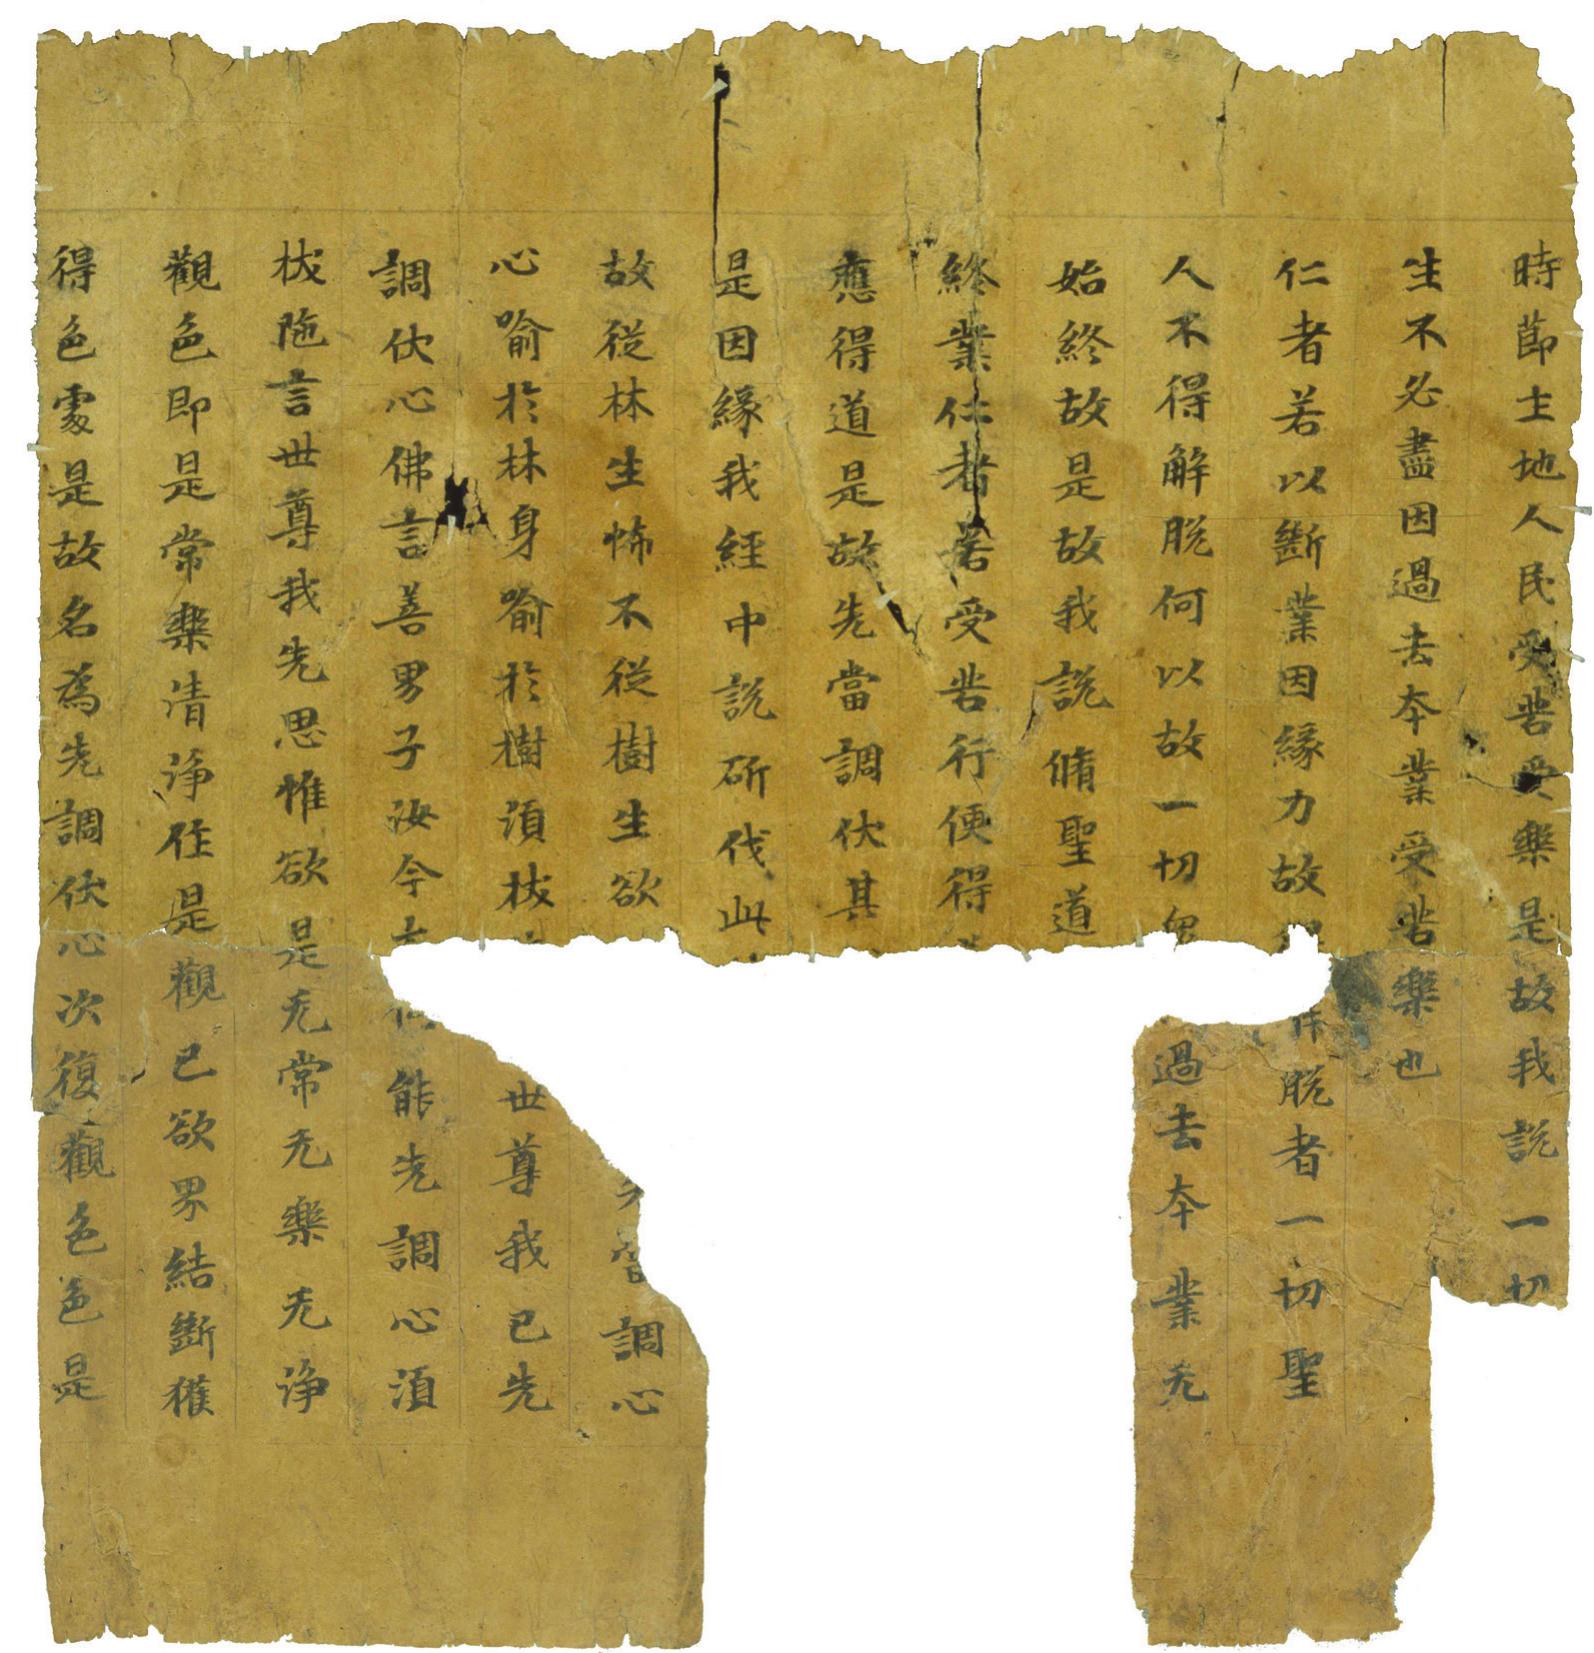 時節土地人民受苦受樂是故我說一切
生不必盡因過去本業受苦樂也
仁者若以斷業因緣力故得解脫者一切聖
人不得解脫何以故一切眾過去本業无
始終故是故我說脩聖道
終業仁者若受苦行便得
應得道是故先當調伏其
是因緣我經中說斫伐此
故從林生怖不從樹生欲先當調心
心喻於林身喻於樹須拔世尊我已先
調伏心佛言善男子汝今能先調心須
拔陁言世尊我先思惟欲是无常无樂无淨
觀色即是常樂清淨住是觀已欲界結斷獲
得色處是故名為先調伏心次復觀色色是